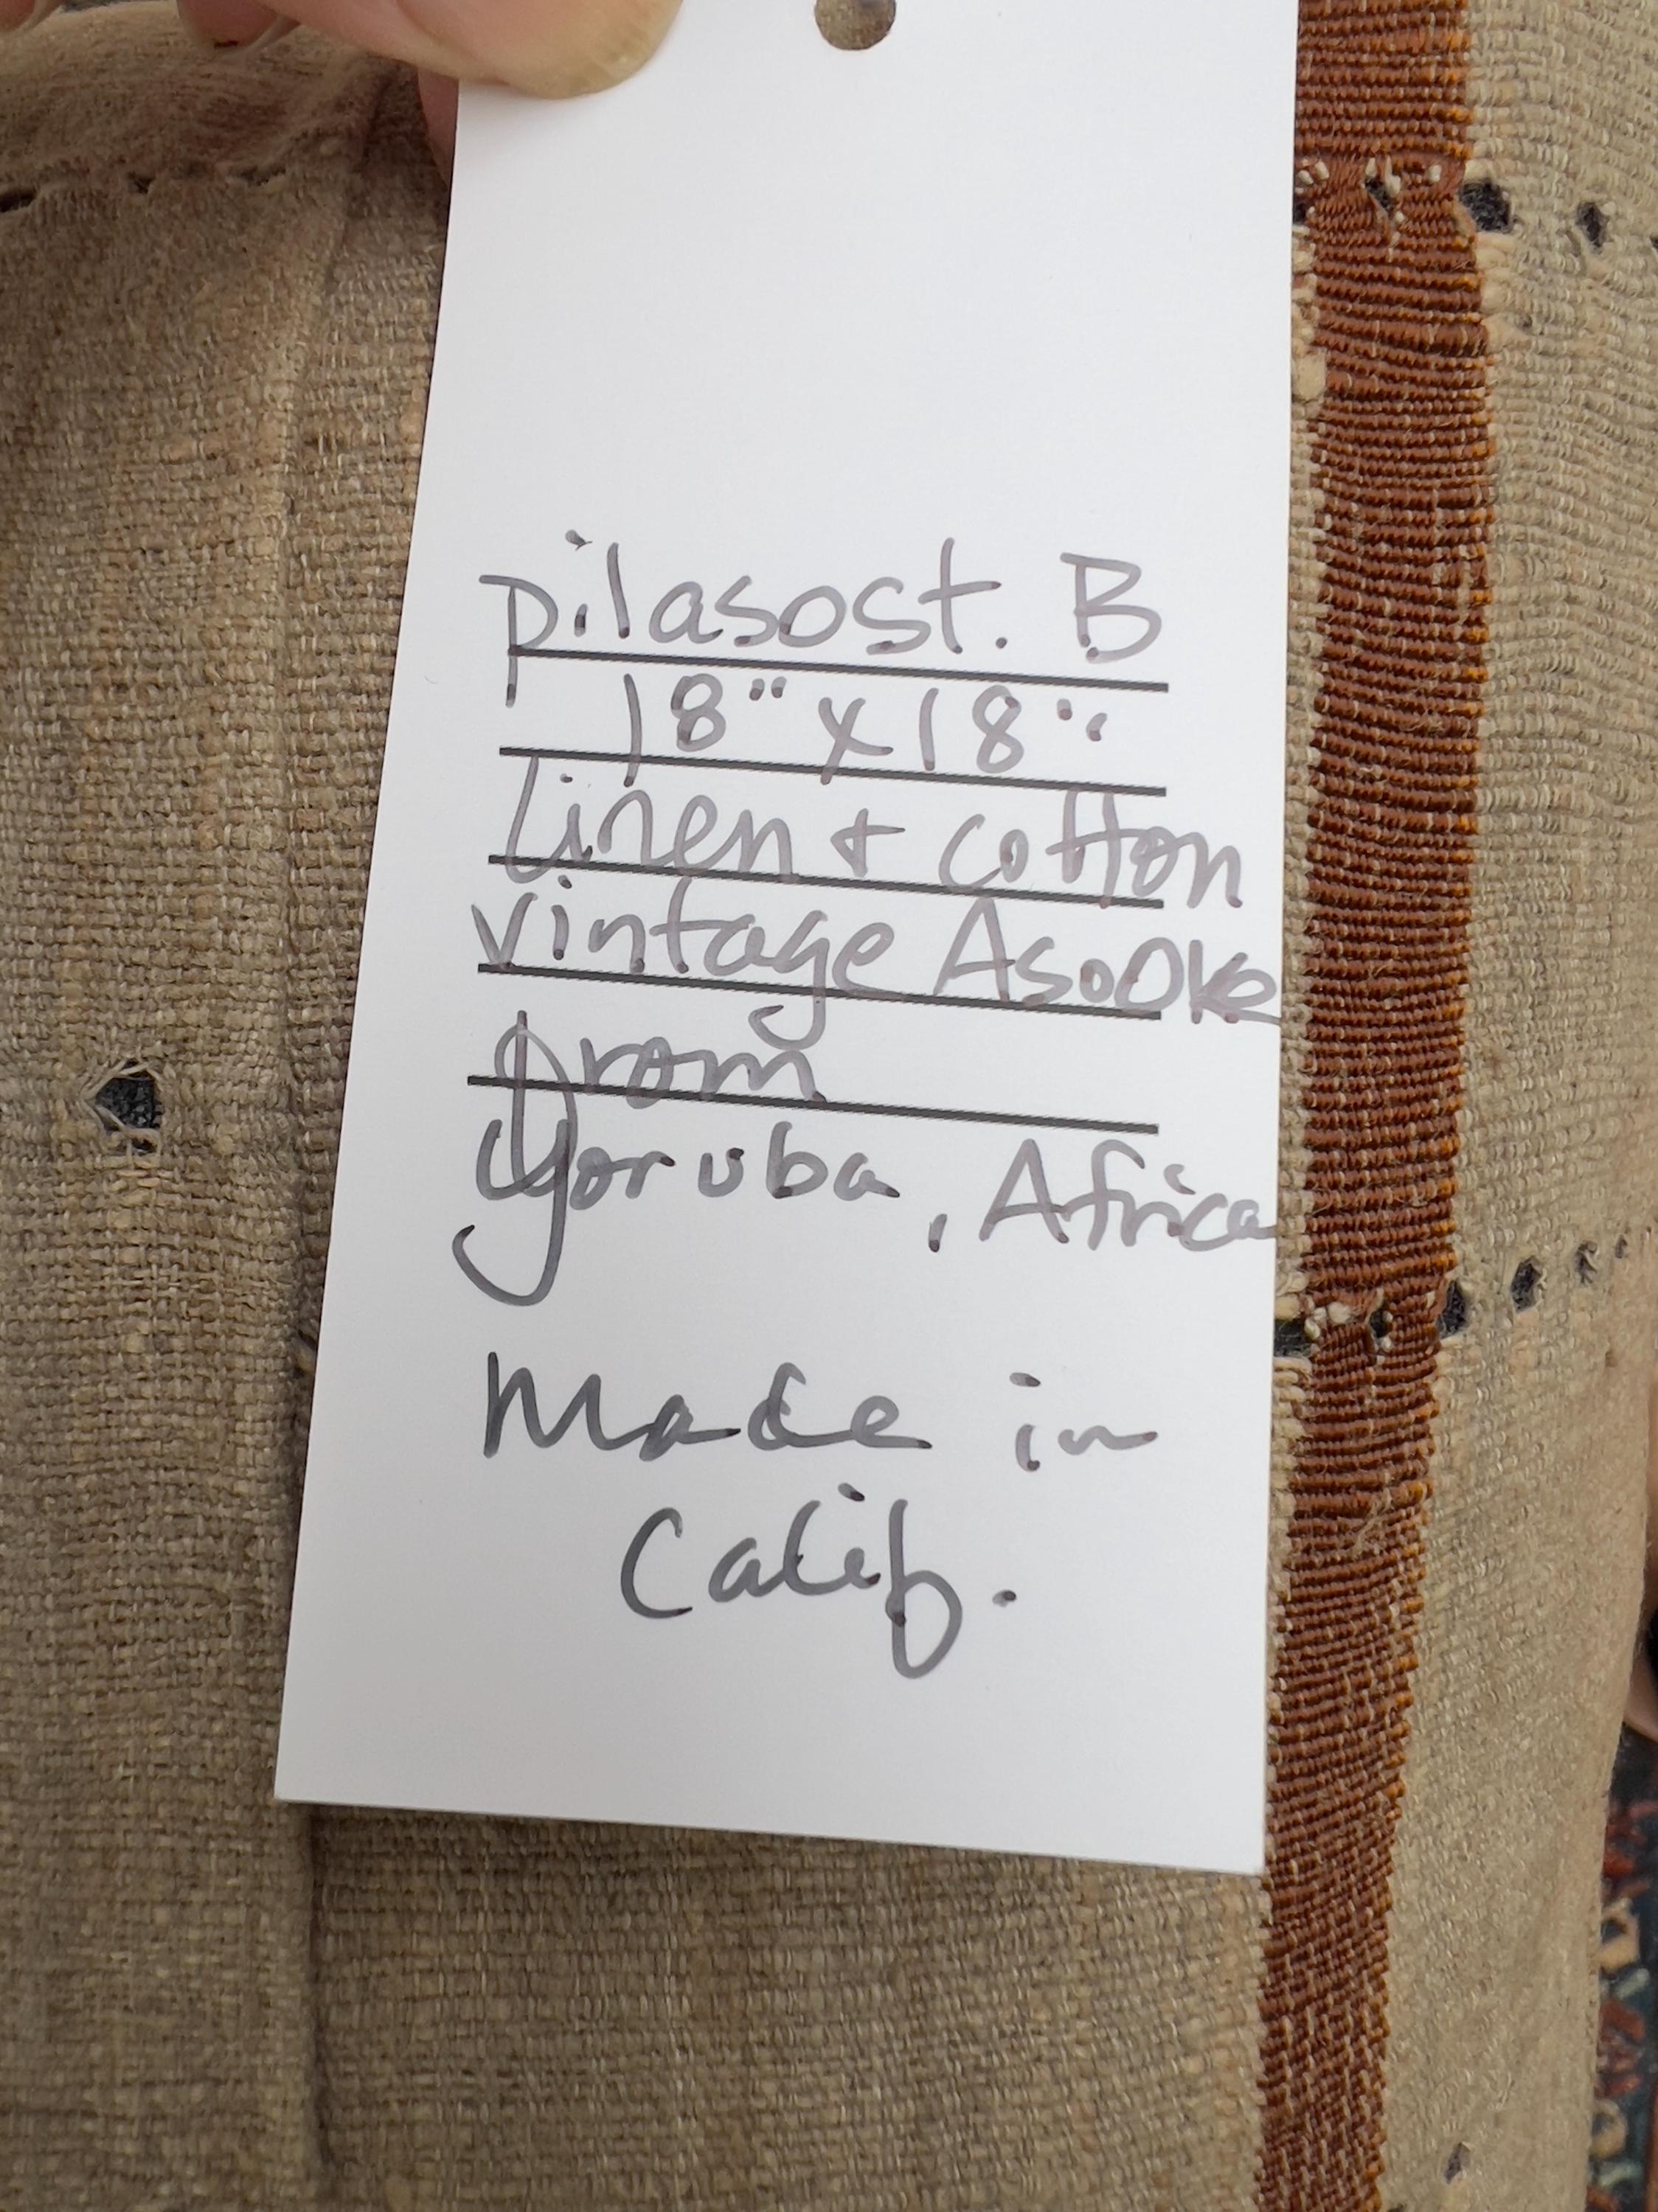 pilasost. B
18" x 18"
Linen + cotton
vintage AsoOke
from
Yoruba, Africa
Made in
Calif.